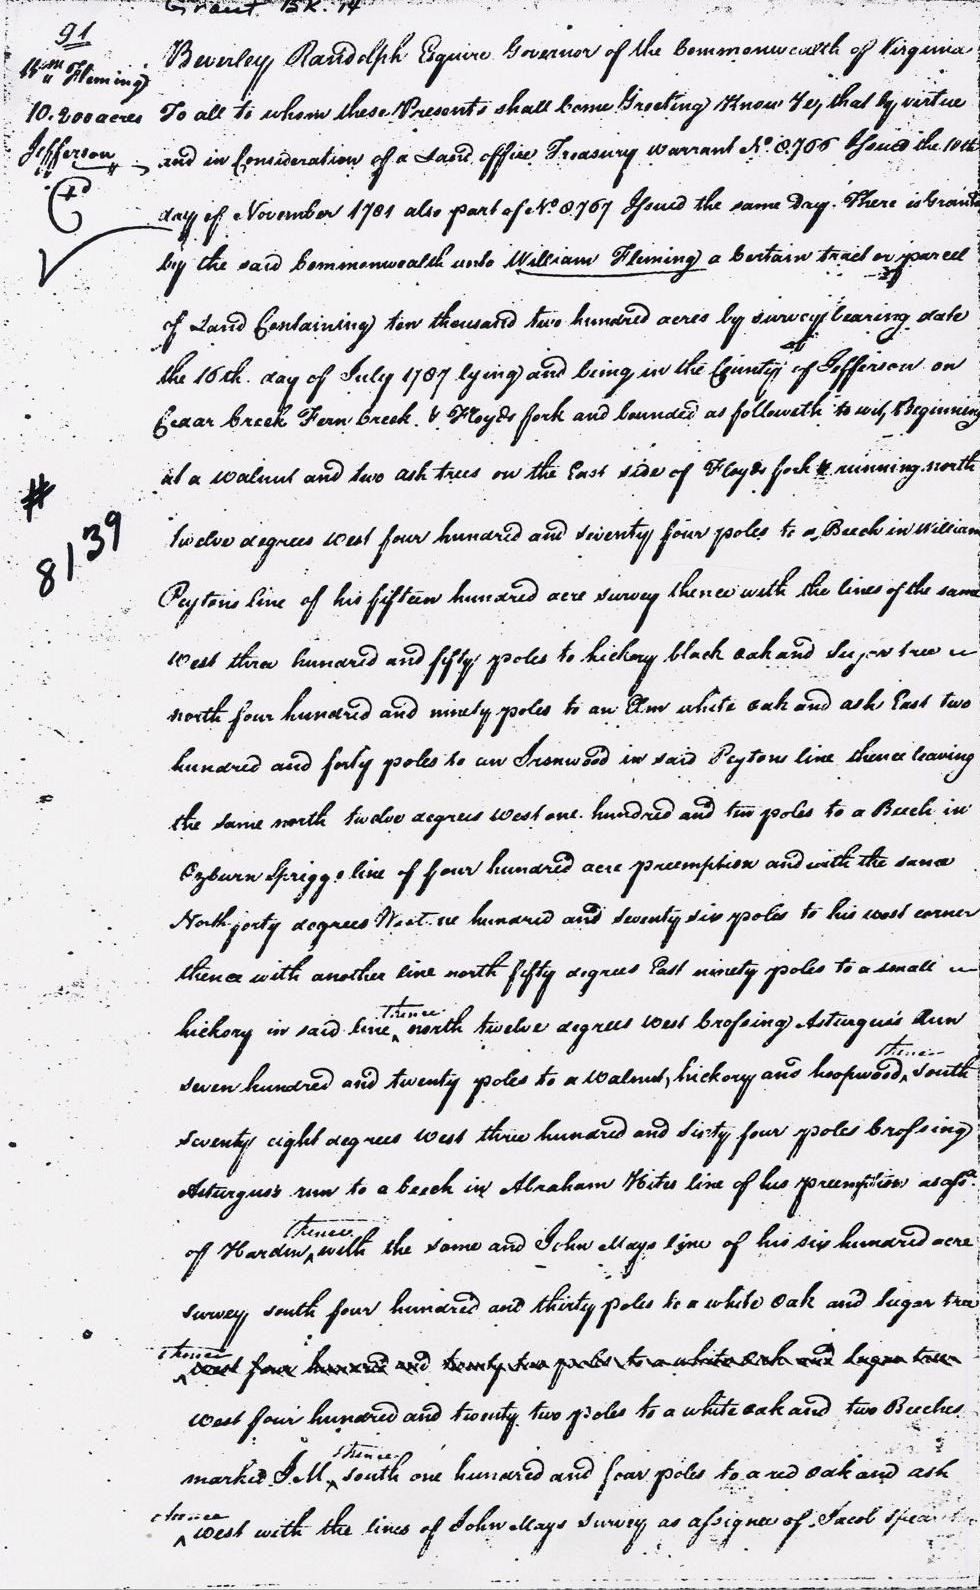 Grant Bk. 14
91
Wm Fleming
10.200 acres
Jefferson
Beverley Randolph Esquire Governor of the Commonwealth of Virginia
To all to whom these Presents shall Come Greeting Know Ye, that by virtue
and in Consideration of a Land office Treasury warrant No. 8.766 Issued the 10th
day of November 1781 also part of No. 8.767 Issued the same Day. There is Granted
by the said Commonwealth unto William Fleming a Certain tract or parcel
of Land Containing ten thousand two hundred acres by survey bearing date
the 16th. day of July 1787 lying and being in the County of Jefferson on
Cedar Creek Fern Creek & Floyds fork and bounded as followeth to wit, Beginning
at a walnut and two ash trees on the East side of Floyds fork & running north
twelve degrees West four hundred and seventy four poles to a Beech in William
Peytons line of his fifteen hundred acre survey thence with the lines of the same
West three hundred and fifty poles to hickory black oak and Sugar tree
north four hundred and ninety poles to an Elm white oak and ash East two
hundred and forty poles to an Ironwood in said Peytons line thence leaving
the same north twelve degrees West one hundred and ten poles to a Beech in
Ozburn Spriggs line of four hundred acre preemption and with the same
North forty degrees West one hundred and seventy six poles to his west corner
thence with another line north fifty degrees East ninety poles to a small
hickory in said line, thence north twelve degrees West Crossing Asturgus's Run
seven hundred and twenty poles to a walnut, hickory and hoopwood, thence South
seventy eight degrees West three hundred and sixty four poles Crossing
Asturgus's run to a beech in Abraham Hites line of his preemption as assee.
of Harden, thence with the same and John Mays line of his six hundred acre
survey south four hundred and thirty poles to a white Oak and Sugar tree
thence west four hundred and twenty two poles to a white oak and sugar tree
West four hundred and twenty two poles to a white oak and two Beeches
marked I M, thence south one hundred and four poles to a red oak and ash
thence West with the lines of John Mays Survey as assignee of Jacob Spear
# 8139